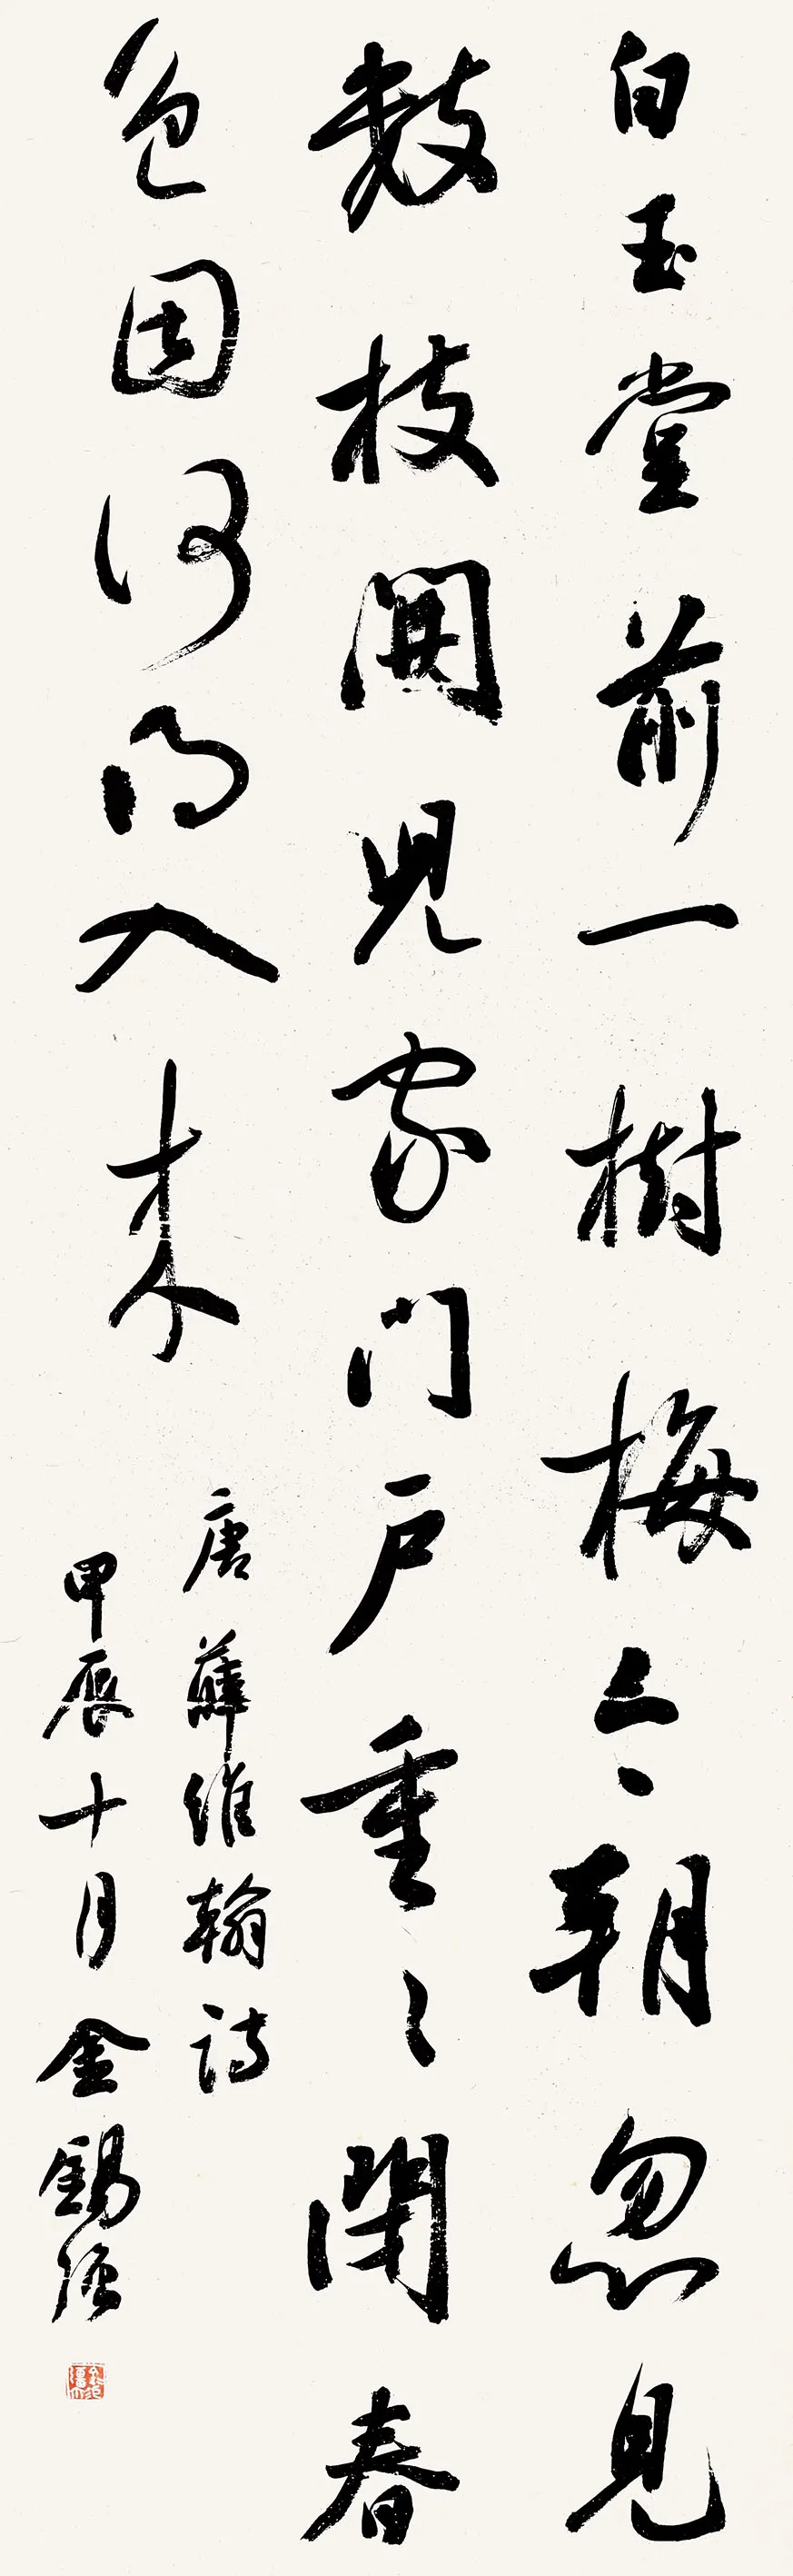 白玉堂前一樹梅今朝忽見
数枝開兒家门户重〻閉春
色因何得入来
唐薛維翰詩
甲辰十月金錫強